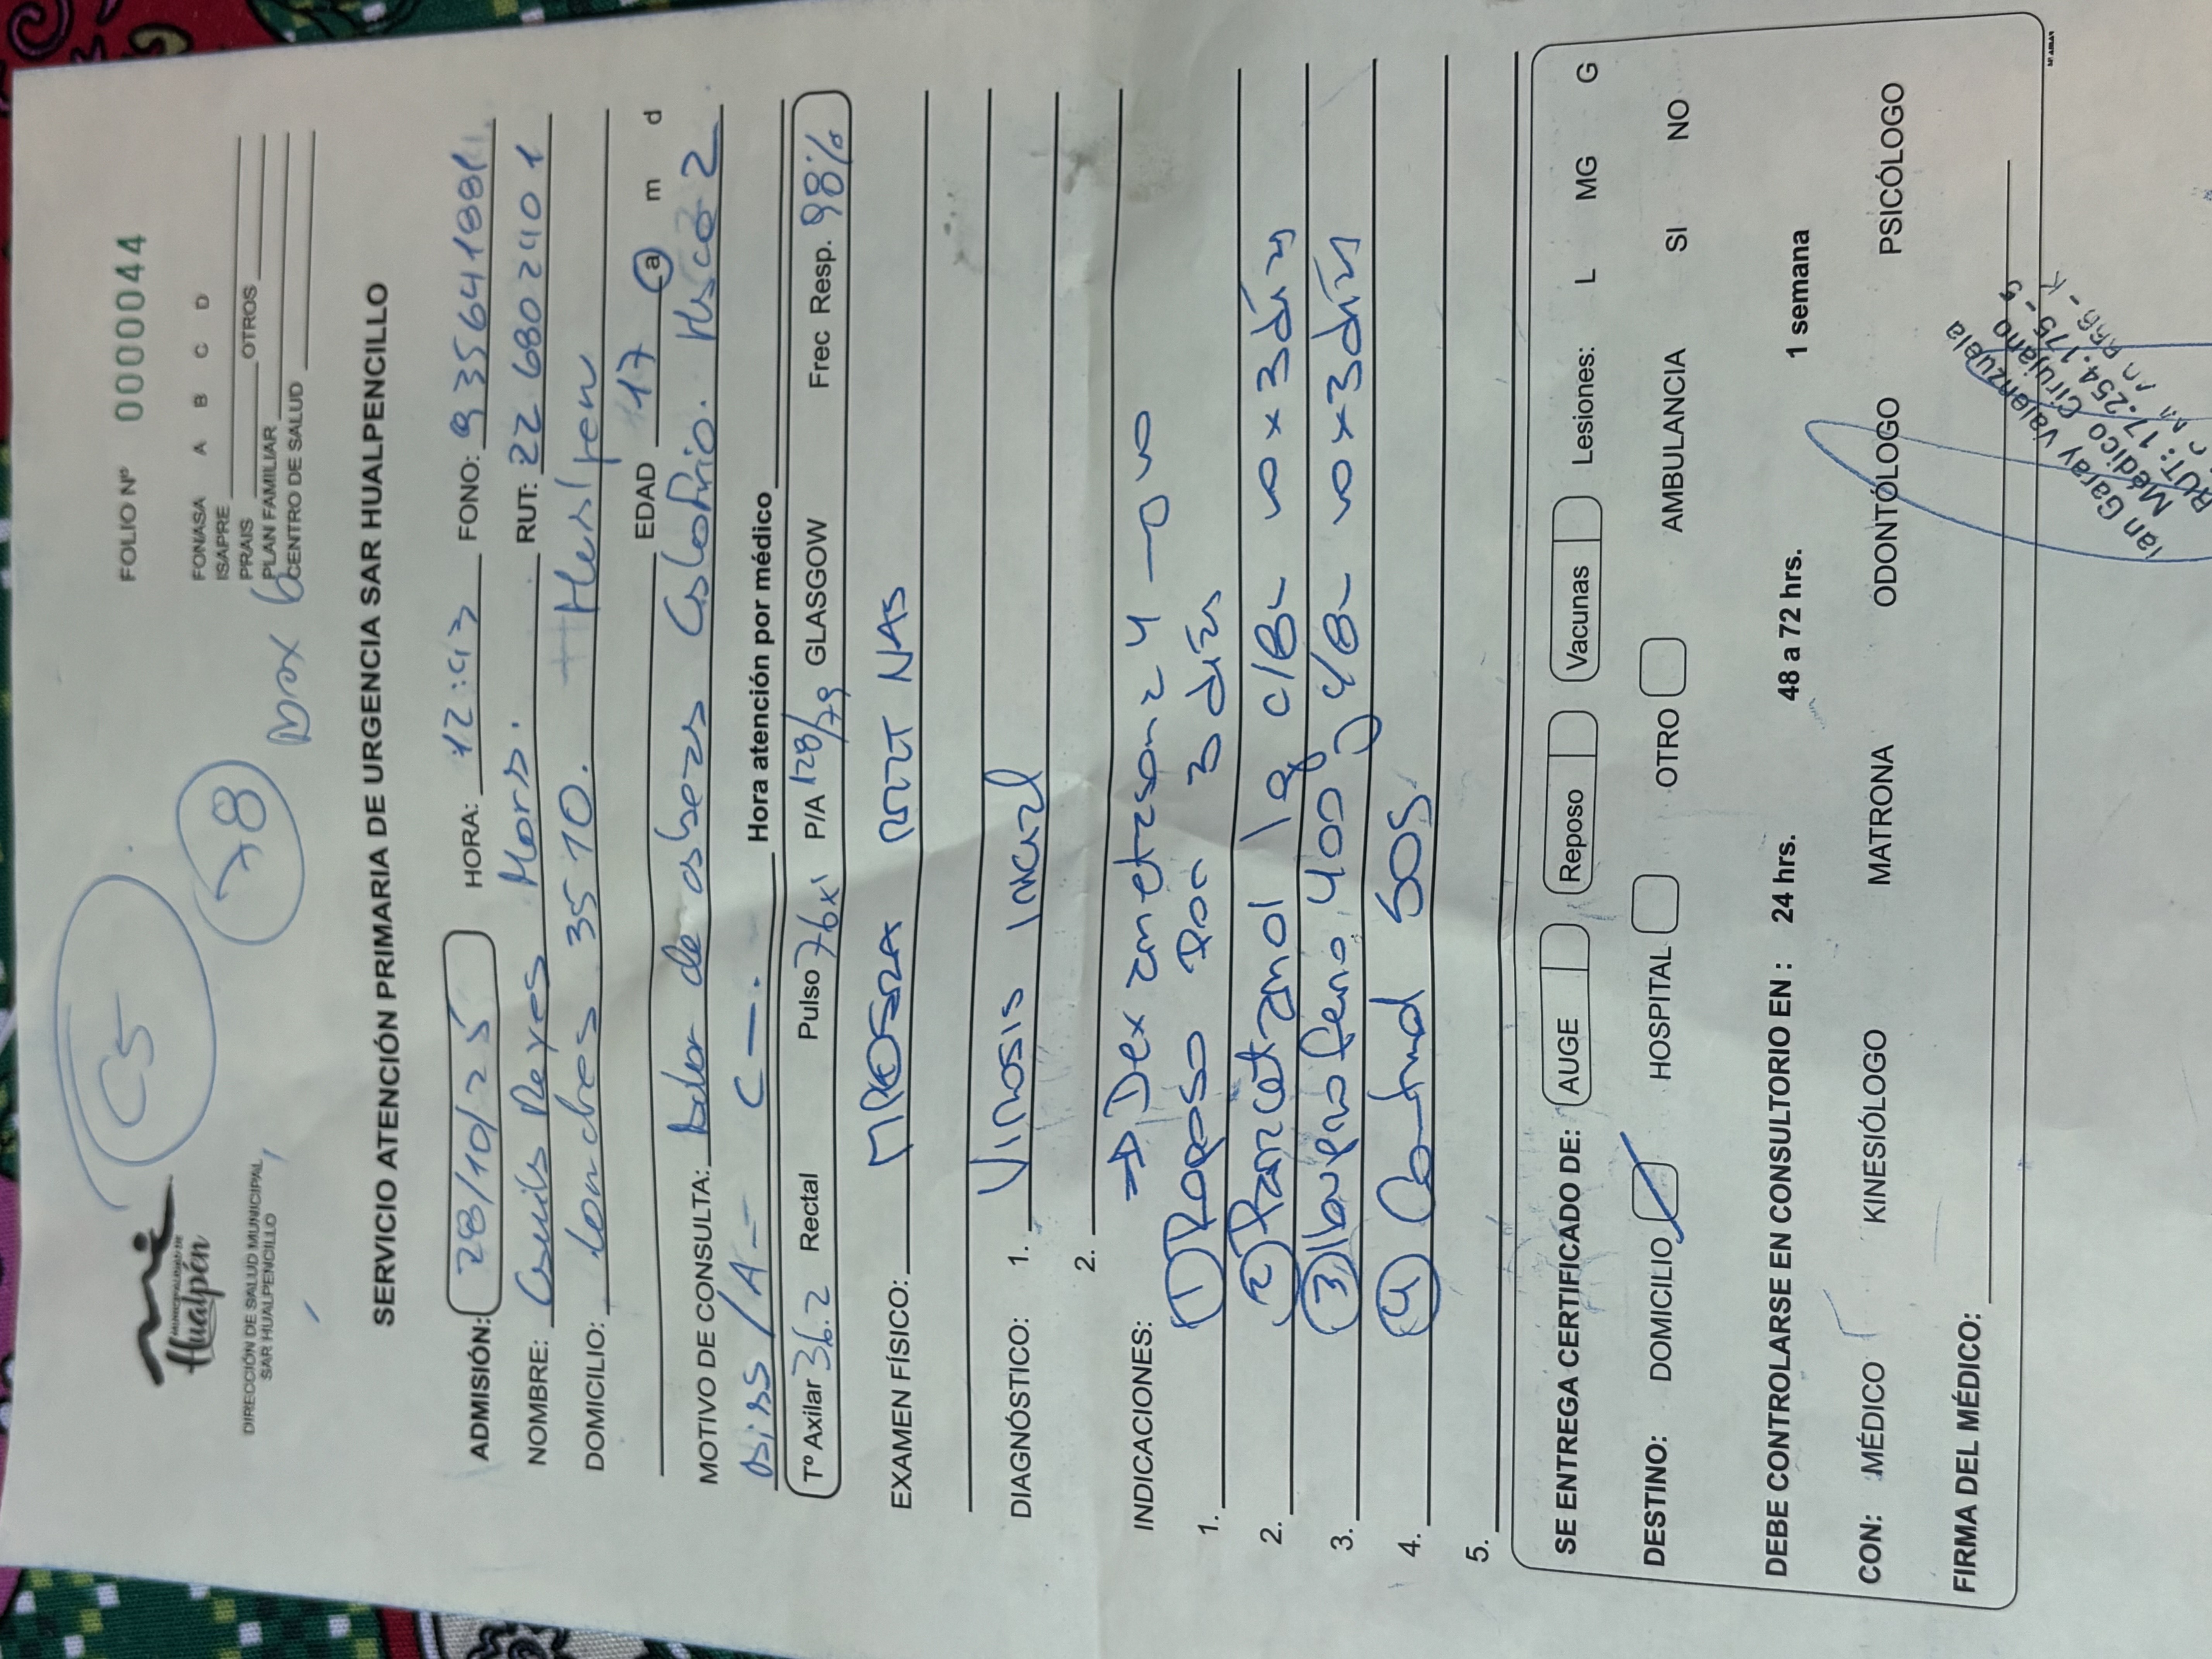 C5
MUNICIPALIDAD DE
Hualpén
DIRECCIÓN DE SALUD MUNICIPAL
SAR HUALPENCILLO
78
FOLIO Nº 0000044
FONASA A B C D
ISAPRE
PRAIS OTROS
PLAN FAMILIAR
CENTRO DE SALUD
Box 6
SERVICIO ATENCIÓN PRIMARIA DE URGENCIA SAR HUALPENCILLO
ADMISIÓN: 28/10/25 HORA: 12:43 FONO: 935641881
NOMBRE: Reyes RUT: 22 680240 1
DOMICILIO: Lonches 3570. Hualpen
EDAD 17 a m d
MOTIVO DE CONSULTA: Dolor de cabeza
Hora atención por médico
Tº Axilar 36.2 Rectal Pulso 76x' P/A 128/79 GLASGOW Frec Resp. 98%
EXAMEN FÍSICO:
DIAGNÓSTICO: 1. Virosis inicial
2.
INDICACIONES: → Dexametasona 4 → vo
1. ① Reposo por 3 días
2. ② Paracetamol 1g c/8 vo x 3 días
3. ③ Ibuprofeno 400 c/8 vo x 3 días
4. ④ Control SOS.
5.
SE ENTREGA CERTIFICADO DE: AUGE Reposo Vacunas Lesiones: L MG G
DESTINO: DOMICILIO HOSPITAL OTRO AMBULANCIA SI NO
DEBE CONTROLARSE EN CONSULTORIO EN : 24 hrs. 48 a 72 hrs. 1 semana
CON: MÉDICO KINESIÓLOGO MATRONA ODONTÓLOGO PSICÓLOGO
FIRMA DEL MÉDICO:
Garay Valenzuela
Médico Cirujano
RUT: 17.254.175-9